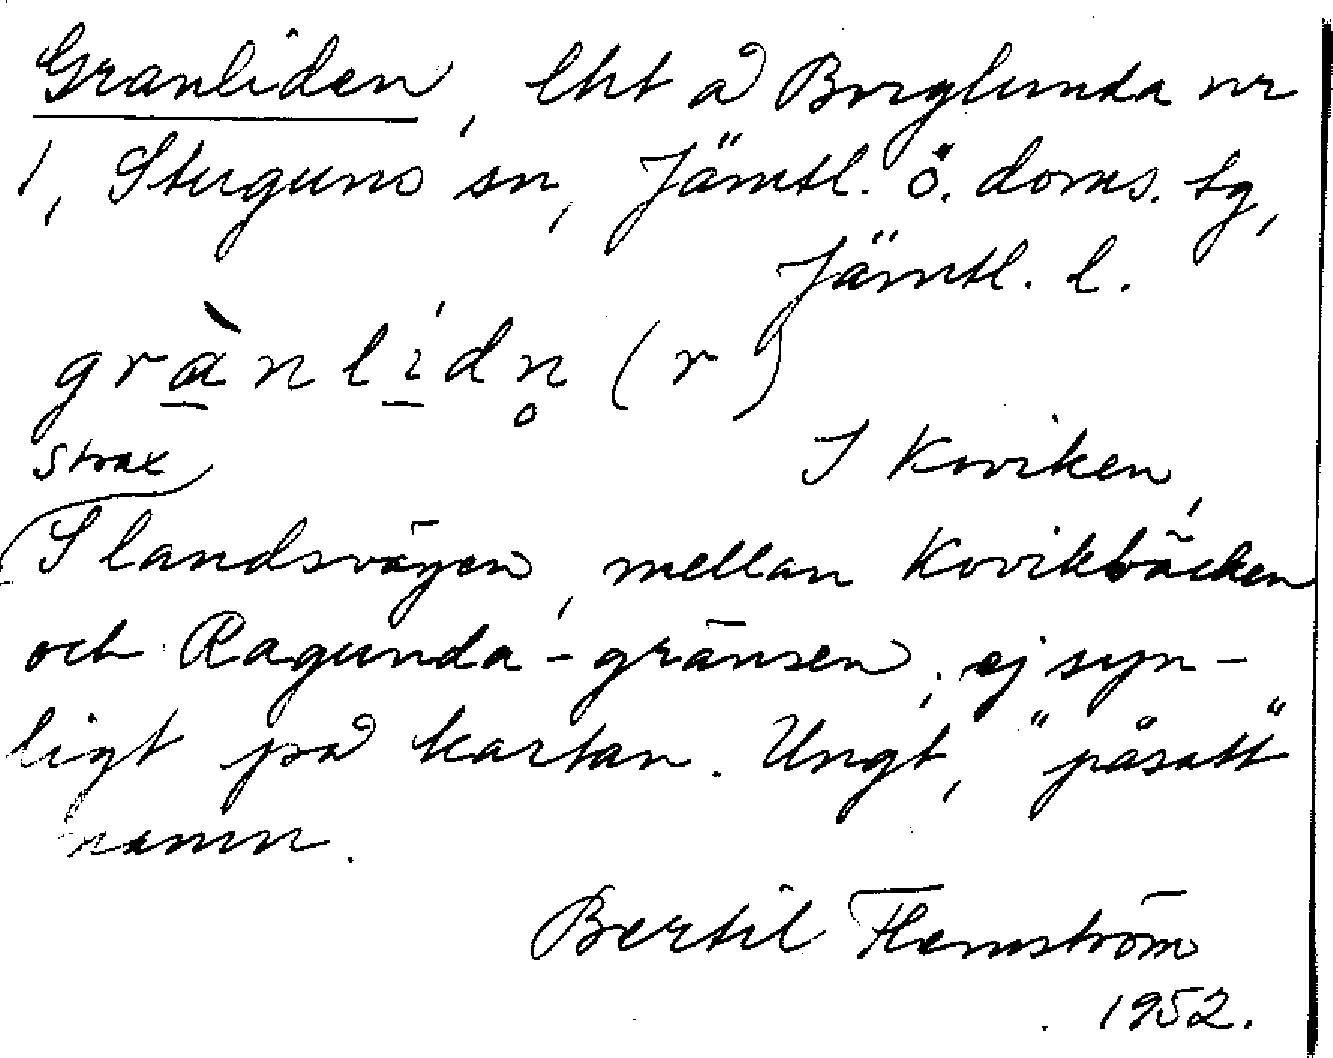 Granliden, lht å Borglunda nr
1, Stuguns sn, Jämtl. ö. doms. tg,
Jämtl. l.
grànlí́dn̥ (r)
I Kviken,
strax
S landsvägen, mellan Kvikbäcken
och Ragunda-gränsen; ej syn-
ligt på kartan. Ungt, "påsatt"
namn.
Bertil Flemström
1952.